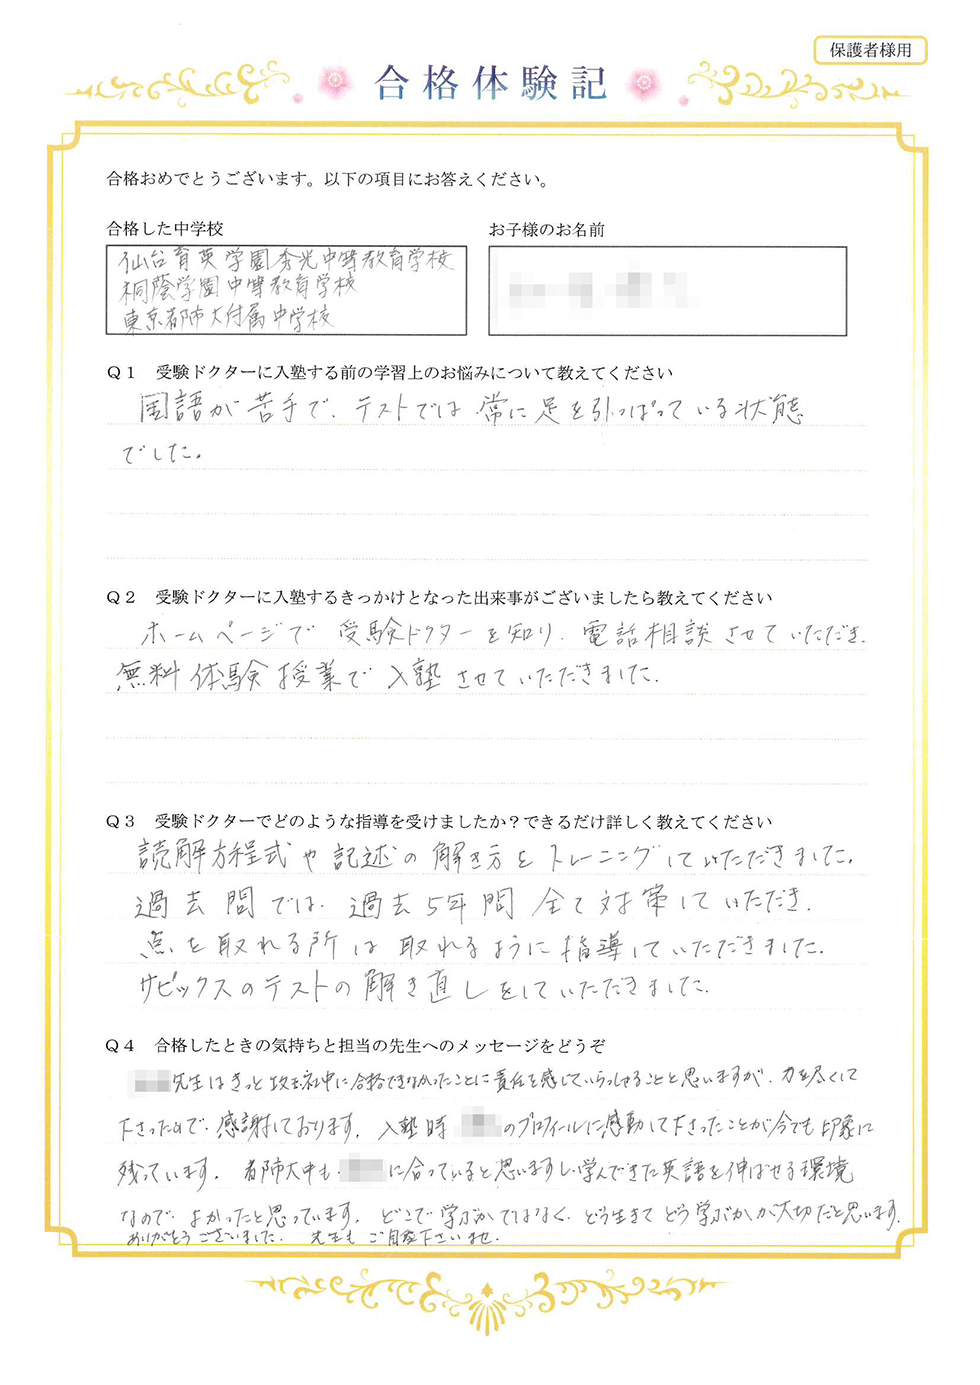 保護者様用
合格体験記
合格おめでとうございます。以下の項目にお答えください。
合格した中学校
お子様のお名前
仙台育英学園秀光中等教育学校
桐蔭学園中等教育学校
東京都市大付属中学校
Q1 受験ドクターに入塾する前の学習上のお悩みについて教えてください
国語が苦手で、テストでは常に足を引っぱっている状態
でした。
Q2 受験ドクターに入塾するきっかけとなった出来事がございましたら教えてください
ホームページで受験ドクターを知り、電話相談させていただき、
無料体験授業で入塾させていただきました。
Q3 受験ドクターでどのような指導を受けましたか？できるだけ詳しく教えてください
読解方程式や記述の解き方をトレーニングしていただきました。
過去問では、過去5年間全て対策していただき、
点を取れる所は取れるように指導していただきました。
サピックスのテストの解き直しをしていただきました。
Q4 合格したときの気持ちと担当の先生へのメッセージをどうぞ
先生はきっと攻玉社中に合格できなかったことに責任を感じていらっしゃることと思いますが、力を尽くして
下さったので、感謝しております。入塾時 のプロフィールに感動して下さったことが今でも印象に
残っています。都市大中も、 に合っていると思いますし、学んできた英語を伸ばせる環境
なので、よかったと思っています。どこで学ぶかではなく、どう生きてどう学ぶかが大切だと思います。
ありがとうございました。先生もご自愛下さいませ。